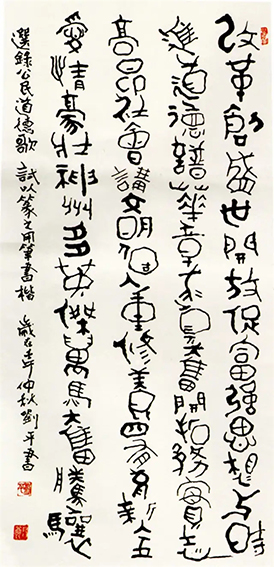 改革創盛世開放促富強思想與時
進道德譜華章奮開拓務實志
高品社會講文明個人重修美四有育新人五
愛情豪壯神州多英傑萬馬奮騰驤
選錄公民道德歌 試以篆之用筆書楷 歲在年仲秋劉平書